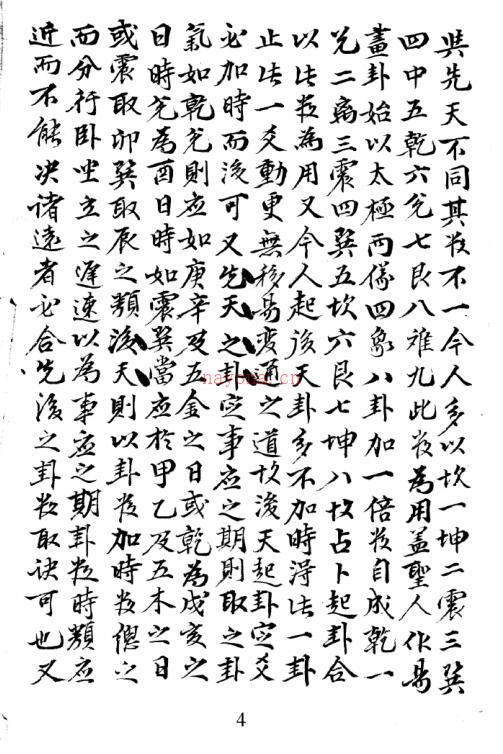 與先天不同其數不一今人多以坎一坤二震三巽
四中五乾六兌七艮八離九此數為用蓋聖人作易
畫卦始以太極兩儀四象八卦加一倍數自成乾一
兌二离三震四巽五坎六艮七坤八故占卜起卦合
以此数為用又今人起後天卦多不加時得此一卦
止此一爻動更無移易变通之道故後天起卦定爻
必加時而後可又先天之卦定事应之期則取之卦
氣如乾兌則应如庚辛及五金之日或乾為戌亥之
日時兌為酉日時如震巽當应於甲乙及五木之日
或震取卯巽取辰之類後天則以卦数加時数總之
而分行卧坐立之遲速以為事应之期卦数時類应
近而不能决諸遠者必合先後之卦数取决可也又
nayona.cn
4